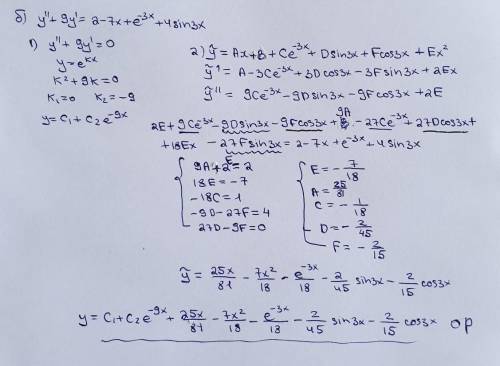 б) y'' + 9y' = 2-7x+e^{-3x}+4sin3x
1) y''+9y'=0
y=e^{kx}
k²+9k=0
k₁=0 k₂=-9
y=C₁+C₂e^{-9x}
2) ỹ = Ax+B+Ce^{-3x}+Dsin3x+Fcos3x+Ex²
ỹ' = A-3Ce^{-3x}+3Dcos3x-3Fsin3x+2Ex
ỹ'' = 9Ce^{-3x}-9Dsin3x-9Fcos3x+2E
2E+9Ce^{-3x}-9Dsin3x-9Fcos3x+9A-27Ce^{-3x}+27Dcos3x+
+18Ex-27Fsin3x=2-7x+e^{-3x}+4sin3x
9A+2E=2
18E=-7
-18C=1
-9D-27F=4
27D-9F=0
E=-7/18
A=25/81
C=-1/18
D=-2/45
F=-2/15
ỹ = 25x/81 - 7x²/18 - e^{-3x}/18 - 2/45 sin3x - 2/15 cos3x
y=C₁+C₂e^{-9x}+25x/81-7x²/18-e^{-3x}/18-2/45 sin3x-2/15 cos3x ор